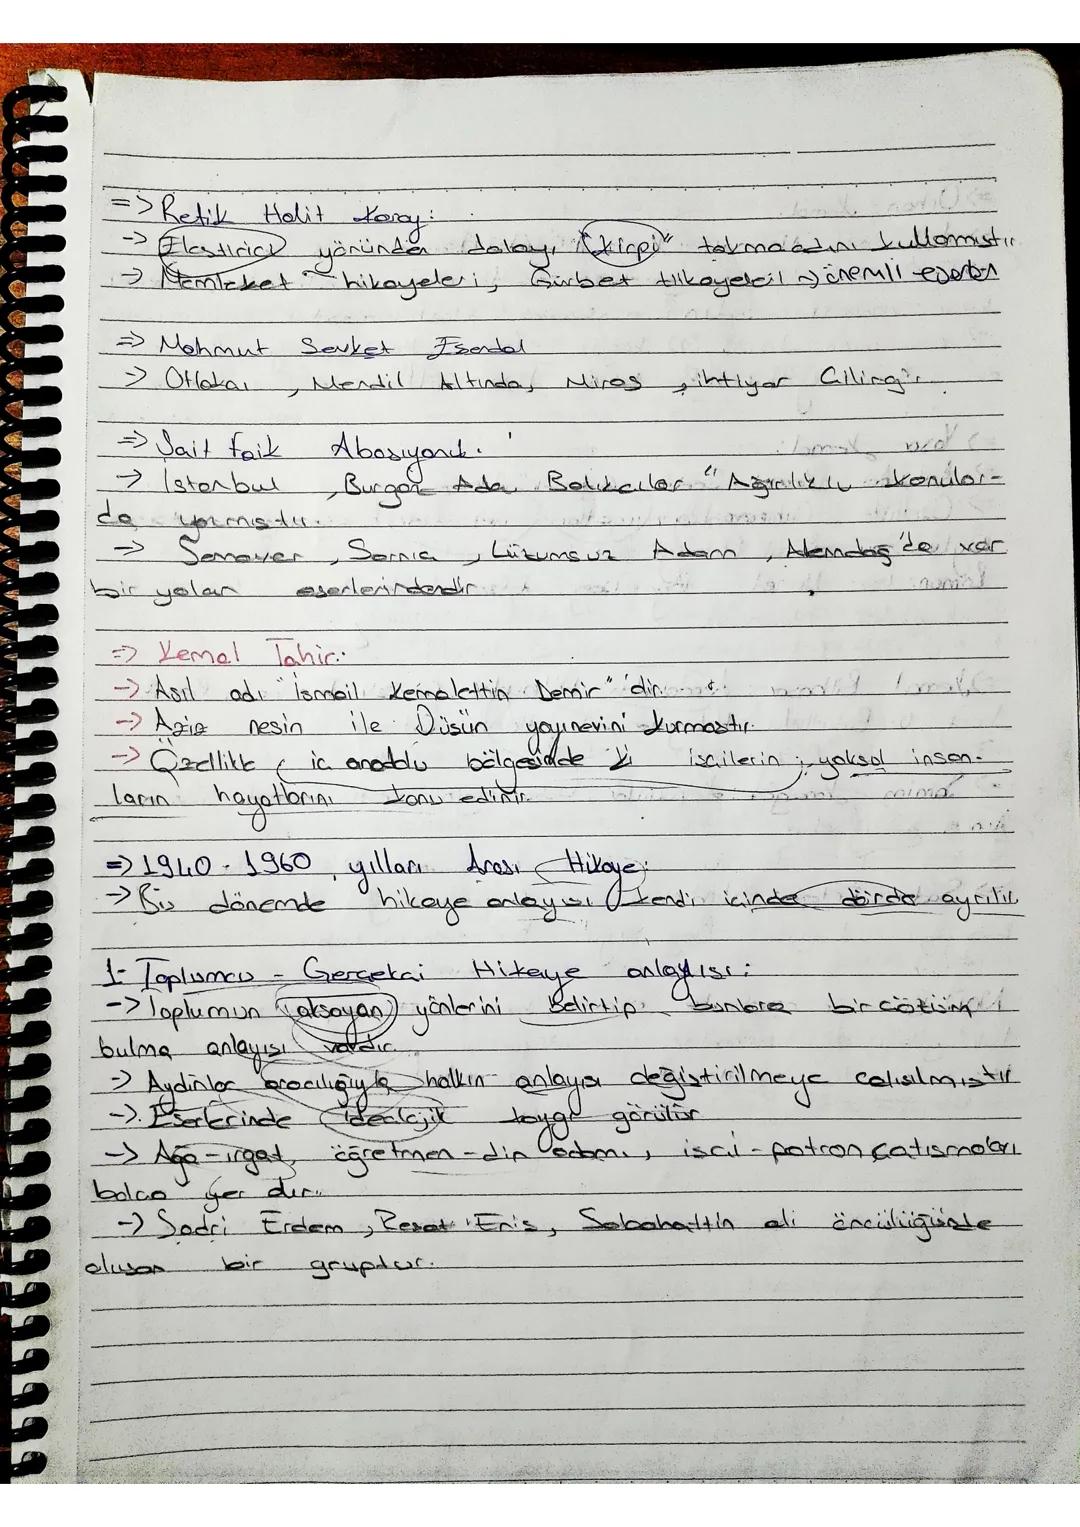 => Refik Halit Karay:
-> Eleştirici yönünden dolayı "kirpi" takma adını kullanmıştır
-> Memleket hikayeleri, Gurbet Hikayeleri -> önemli eserler
=> Mahmut Şevket Esendal
-> Otlakçı, Mendil Altında, Miras, ihtiyar Çilingir
=> Sait faik Abasıyanık:
-> İstanbul, Burgaz Ada Balıkçılar "Ağırlıklı konular-
da yazmıştır.
-> Semaver, Sarnıç, Lüzumsuz Adam, Alemdağ'da var
bir yılan eserlerindendir
=> Kemal Tahir:
-> Asıl adı "İsmail Kemalettin Demir" dir.
-> Aziz nesin ile Düşün yayınevini kurmuştur.
-> Özellikle iç anadolu bölgesinde ki işçilerin, yoksul insan-
ların hayatlarını konu edinir.
=> 1940-1960 yılları Arası Hikaye:
-> Bu dönemde hikaye anlayışı kendi içinde dörde ayrılır
1- Toplumcu - Gerçekçi Hikaye anlayışı:
-> Toplumun (aksayan) yönlerini belirtip bunlara bir çözüm
bulma anlayışı vardır.
-> Aydınlar aracılığıyla halkın anlayışı değiştirilmeye çalışılmıştır
-> Eserlerinde idealojik kaygı görülür
-> Ağa-ırgat, öğretmen-din adamı, işçi-patron çatışmaları
balca yer dır.
-> Sadri Erdem, Reşat Enis, Sabahattin ali öncülüğünde
oluşan bir gruptur.